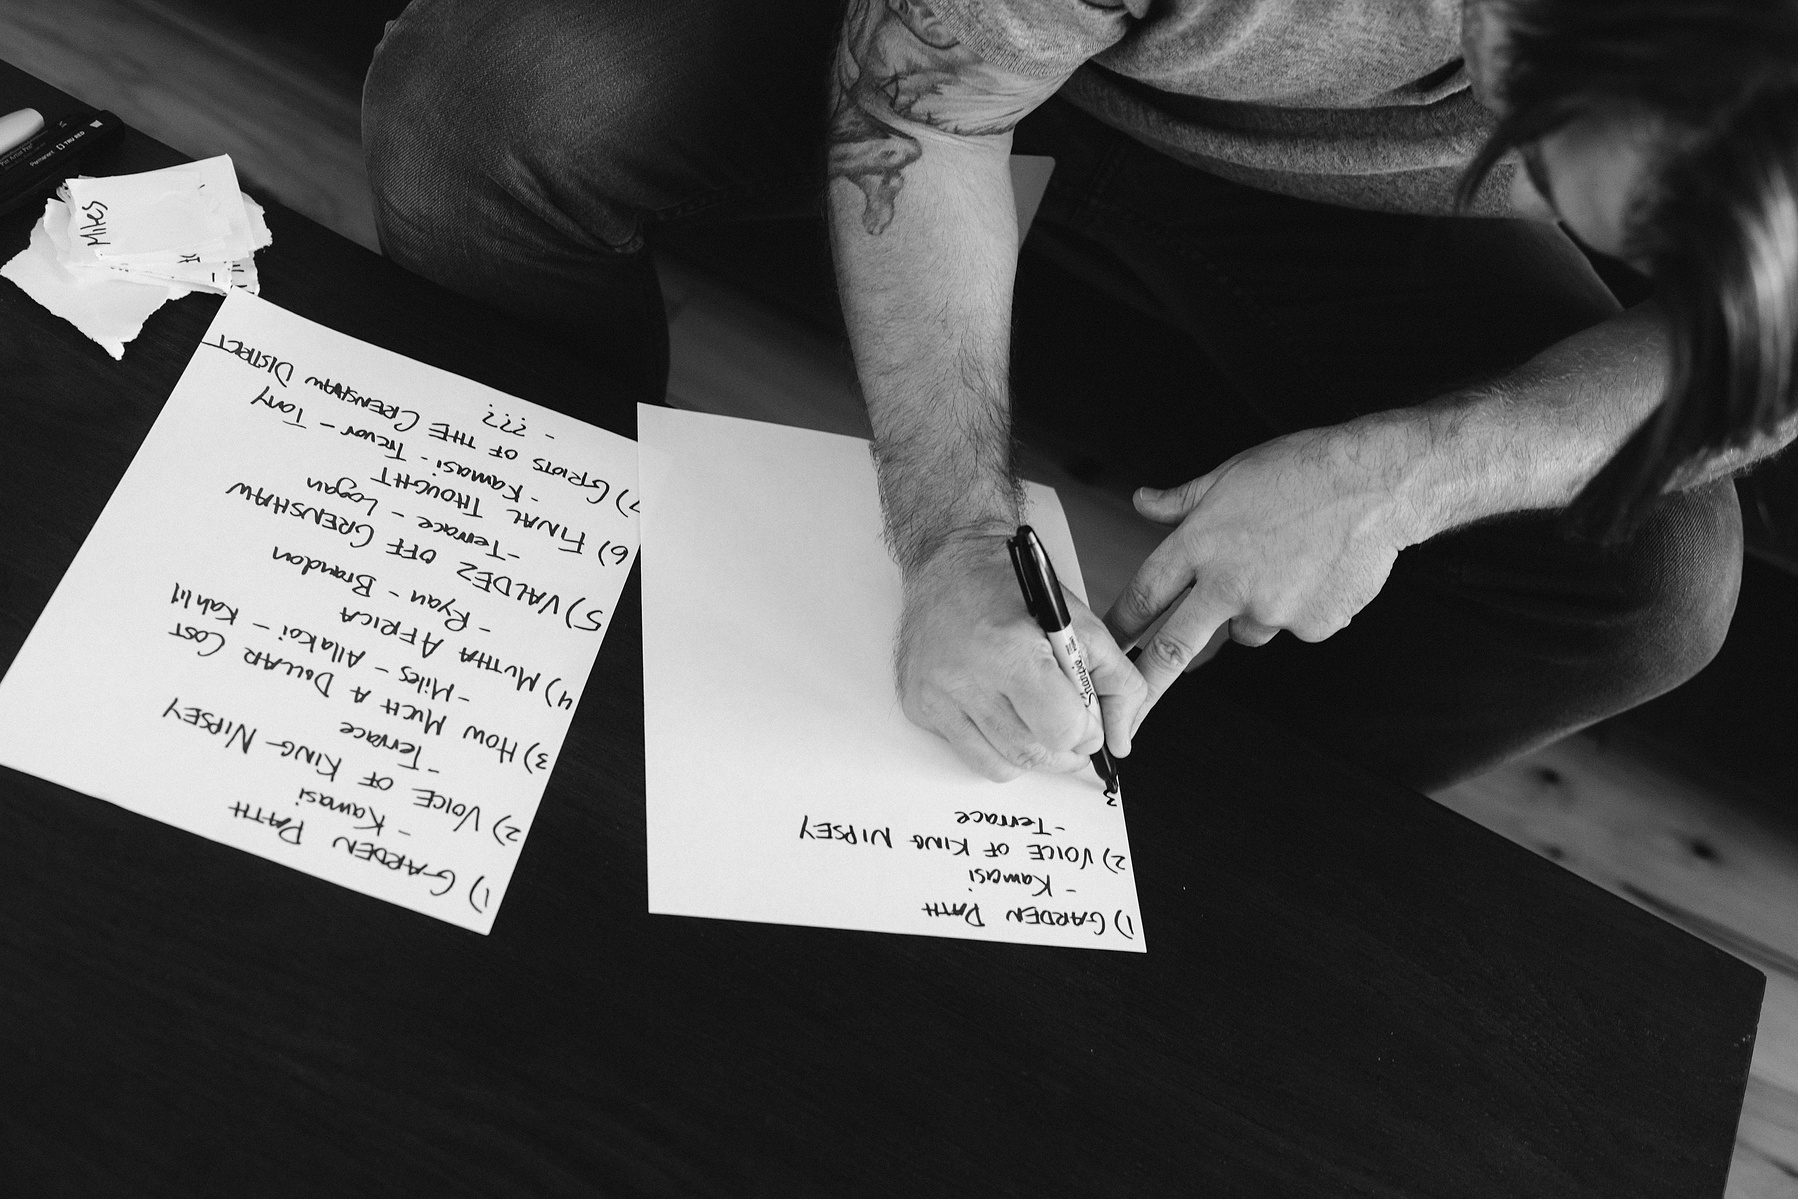 1) GARDEN PATH
- Kamasi
2) VOICE OF KING NIPSEY
- Terrace
3) HOW MUCH A DOLLAR COST
- Miles - Allakoi - Kahlil
4) MUTHA AFRICA
- Ryan - Brandon
5) VALDEZ OFF CRENSHAW
- Terrace - Logan
6) FINAL THOUGHT
- Kamasi - Trevor - Tony
7) GRIOTS OF THE CRENSHAW DISTRICT
- ???
1) GARDEN PATH
- Kamasi
2) VOICE OF KING NIPSEY
- Terrace
3
Miles
Sharpie